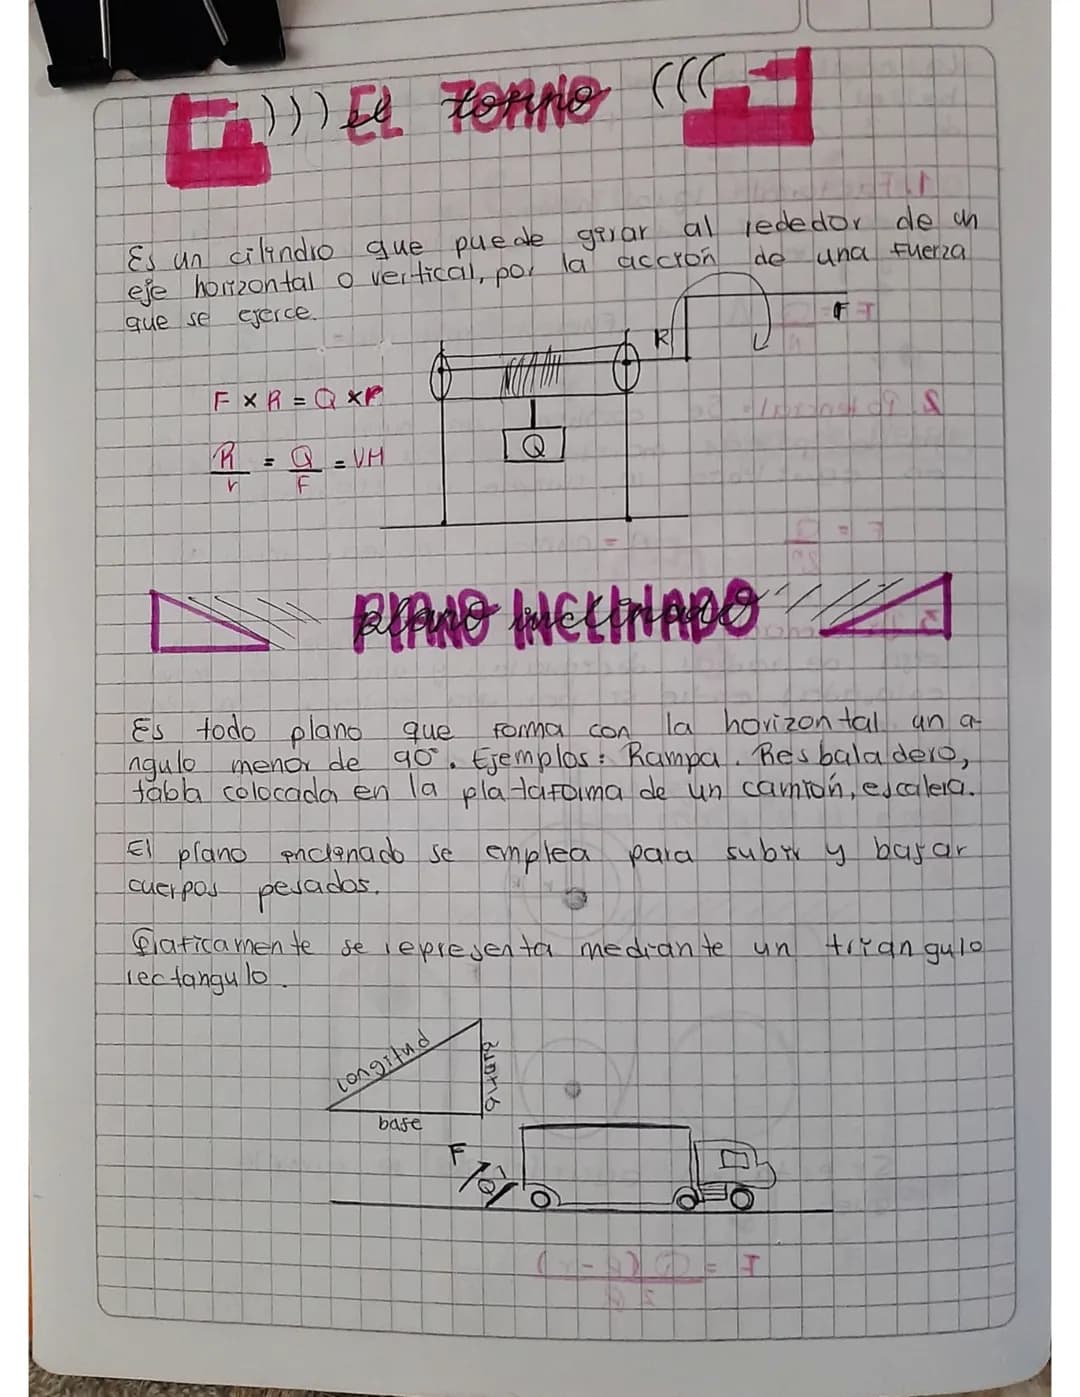 El torno
Es un cilindro que puede girar al rededor de un
eje horizontal o vertical, por la acción de una fuerza
que se ejerce.
F
R
F x R = Q x r
Q
R/r = Q/F = VM
PLANO INCLINADO
Es todo plano que forma con la horizontal un a-
ngulo menor de 90°. Ejemplos: Rampa. Resbaladero,
tabla colocada en la plataforma de un camión, escalera.
El plano enclinado se emplea para subir y bajar
cuerpos pesados.
Graficamente se representa mediante un triangulo
rectangulo.
longitud
altura
base
F